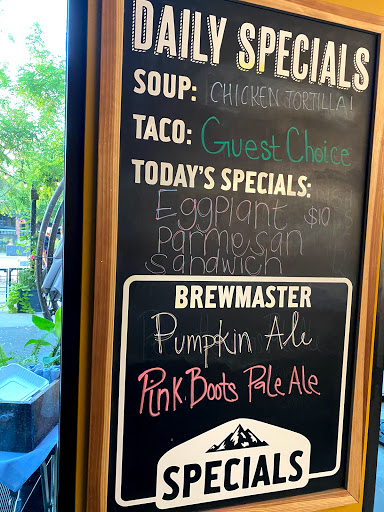 DAILY SPECIALS
SOUP: CHICKEN TORTILLA!
TACO: Guest Choice
TODAY'S SPECIALS:
Eggplant $10
parmosan
sandwich
BREWMASTER
Pumpkin Ale
Pink Boots Pale Ale
SPECIALS